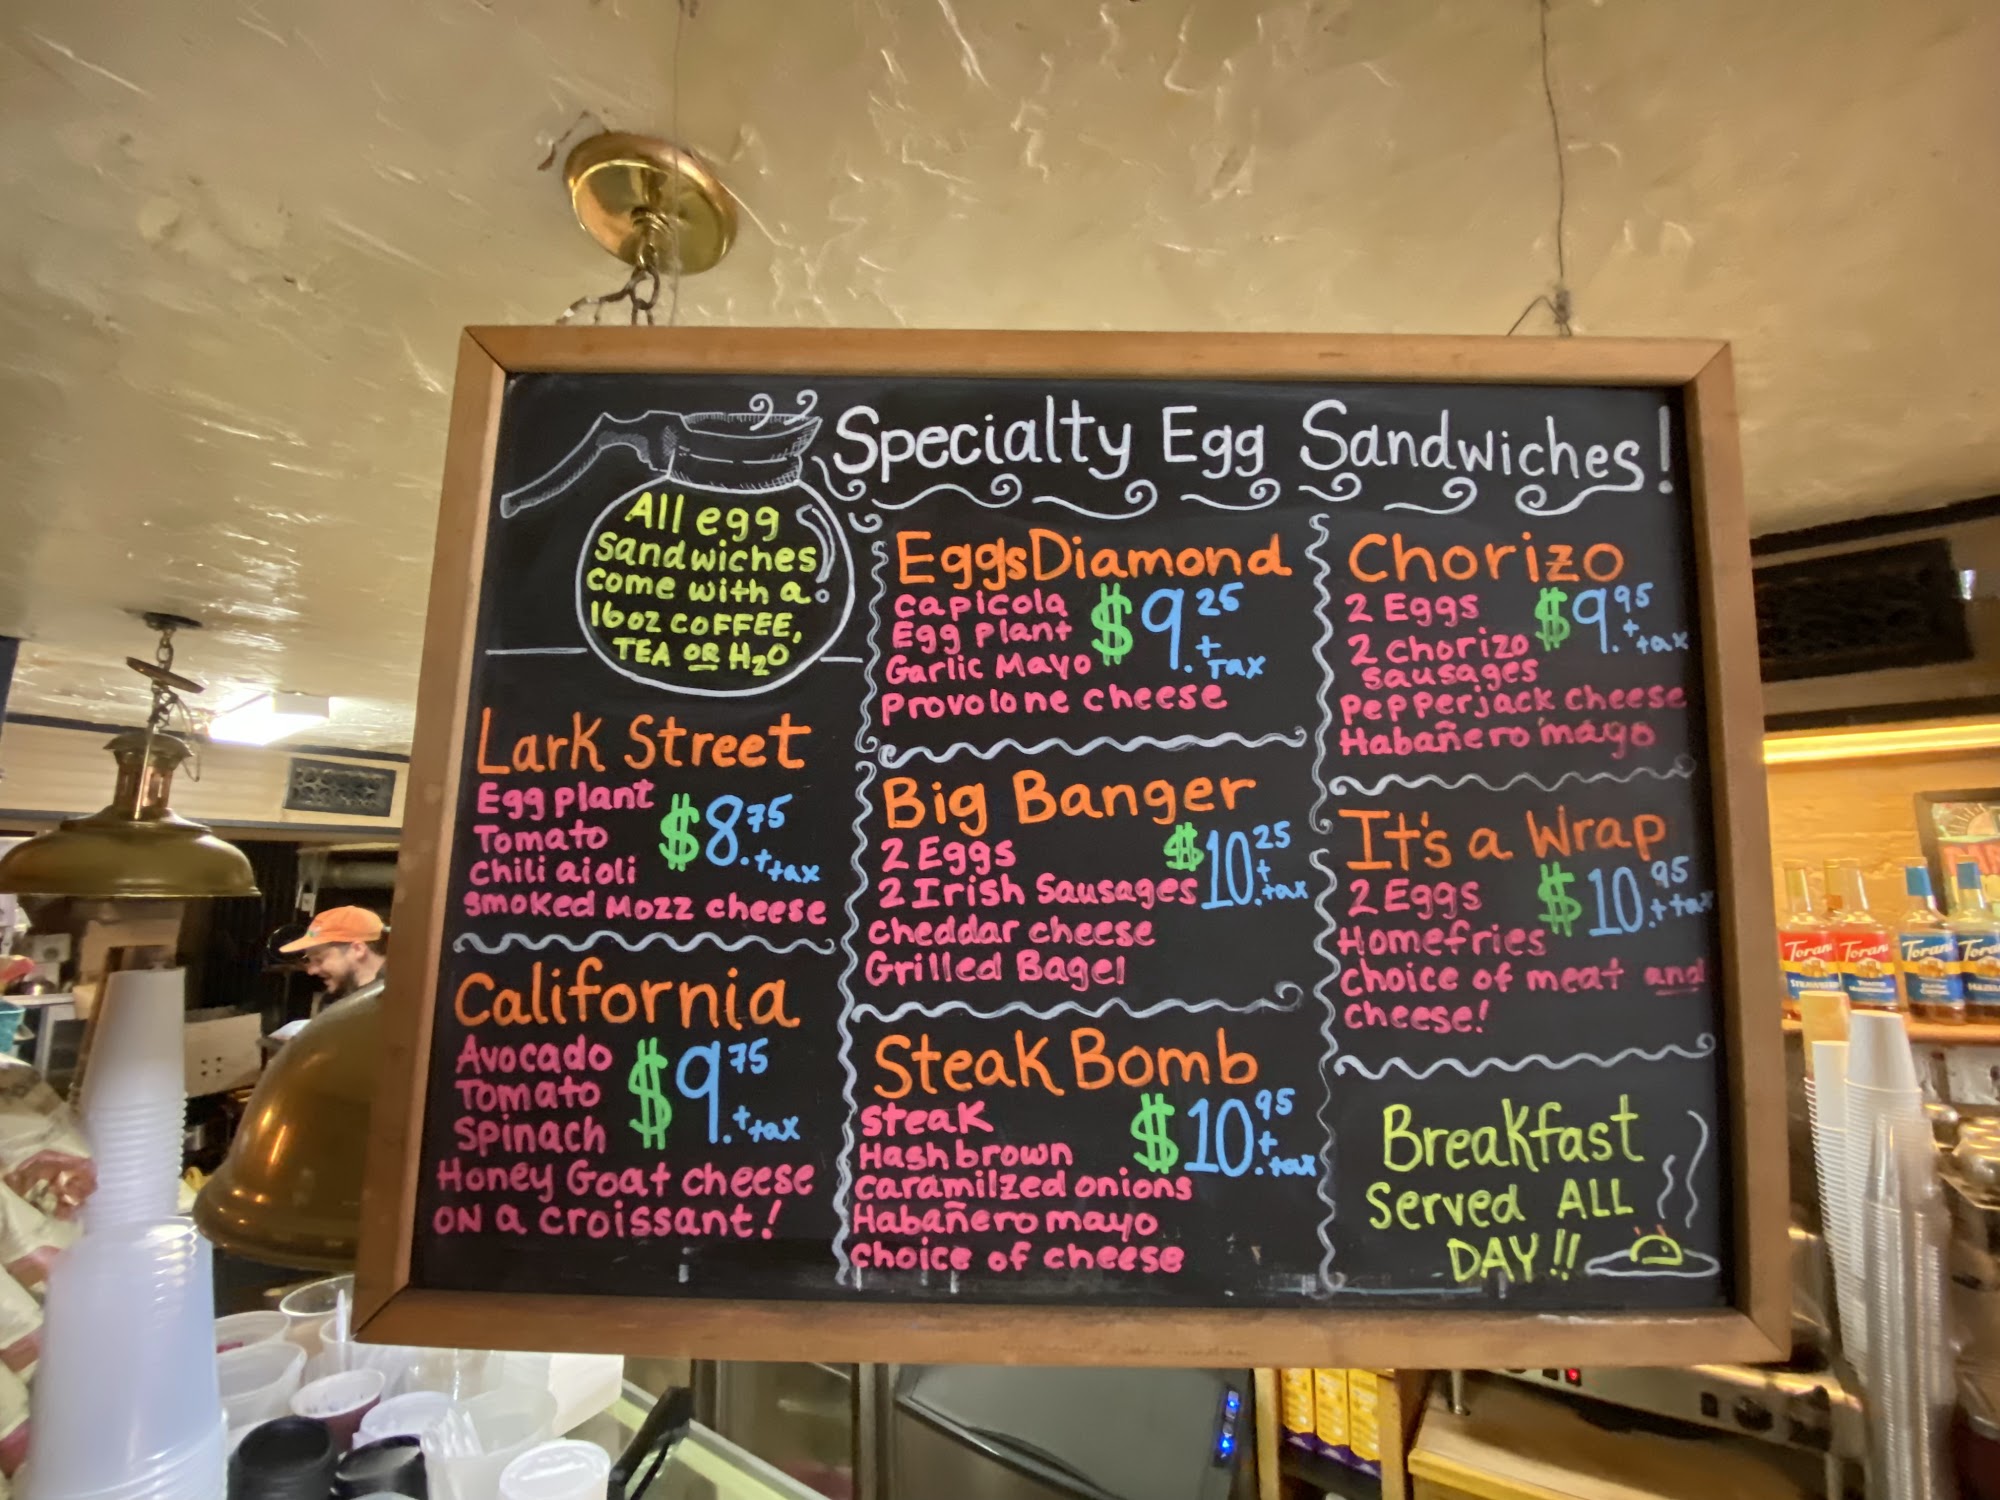 Specialty Egg Sandwiches!
All egg
sandwiches
come with a
16oz COFFEE,
TEA OR H2O
Lark Street
Egg plant
Tomato
chili aioli
smoked Mozz cheese
$8.75
+ tax
California
Avocado
Tomato
Spinach
Honey Goat cheese
ON a croissant!
$9.75
+ tax
EggsDiamond
capicola
Egg plant
Garlic Mayo
Provolone cheese
$9.25
+
Tax
Big Banger
2 Eggs
2 Irish Sausages
cheddar cheese
Grilled Bagel
$10.25
+
tax
Steak Bomb
steak
Hash brown
caramilzed onions
Habañero mayo
choice of cheese
$10.95
+
tax
Chorizo
2 Eggs
2 chorizo
sausages
Pepperjack cheese
Habañero mayo
$9.95
+ tax
It's a Wrap
2 Eggs
Homefries
choice of meat and
cheese!
$10.95
+ tax
Breakfast
Served ALL
DAY!!
Torani
Torani
Torani